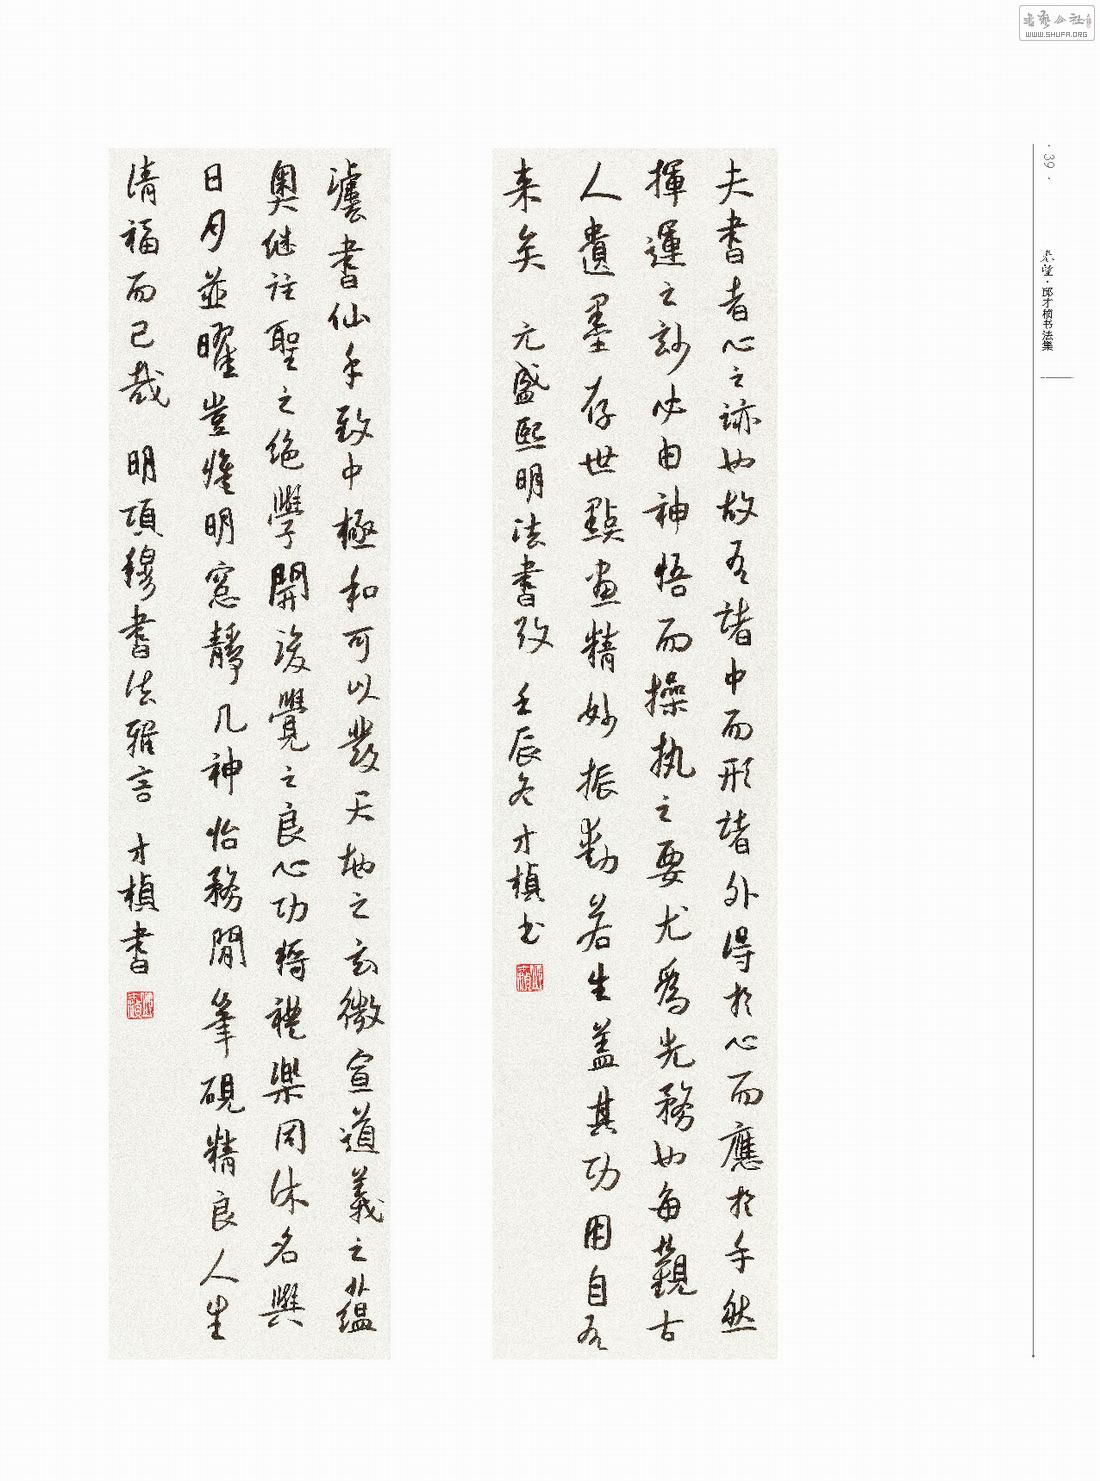 WWW.SHUFA.ORG
· 39 ·
邱才桢书法集
夫書者心之迹也故有諸中而形諸外得於心而應於手然
揮運之妙必由神悟而操执之要尤爲先務也每觀古
人遺墨存世點畫精妙振動若生蓋其功用自有
来矣 元盛熙明法書攷 壬辰冬才楨书
書仙手致中極和可以發天地之玄微宣道義之蘊
奥继往聖之绝學開後覺之良心功将禮樂同休名與
日月並曜豈惟明窓靜几神怡務閒筆硯精良人生
清福而已哉 明項穆書法雅言 才楨書